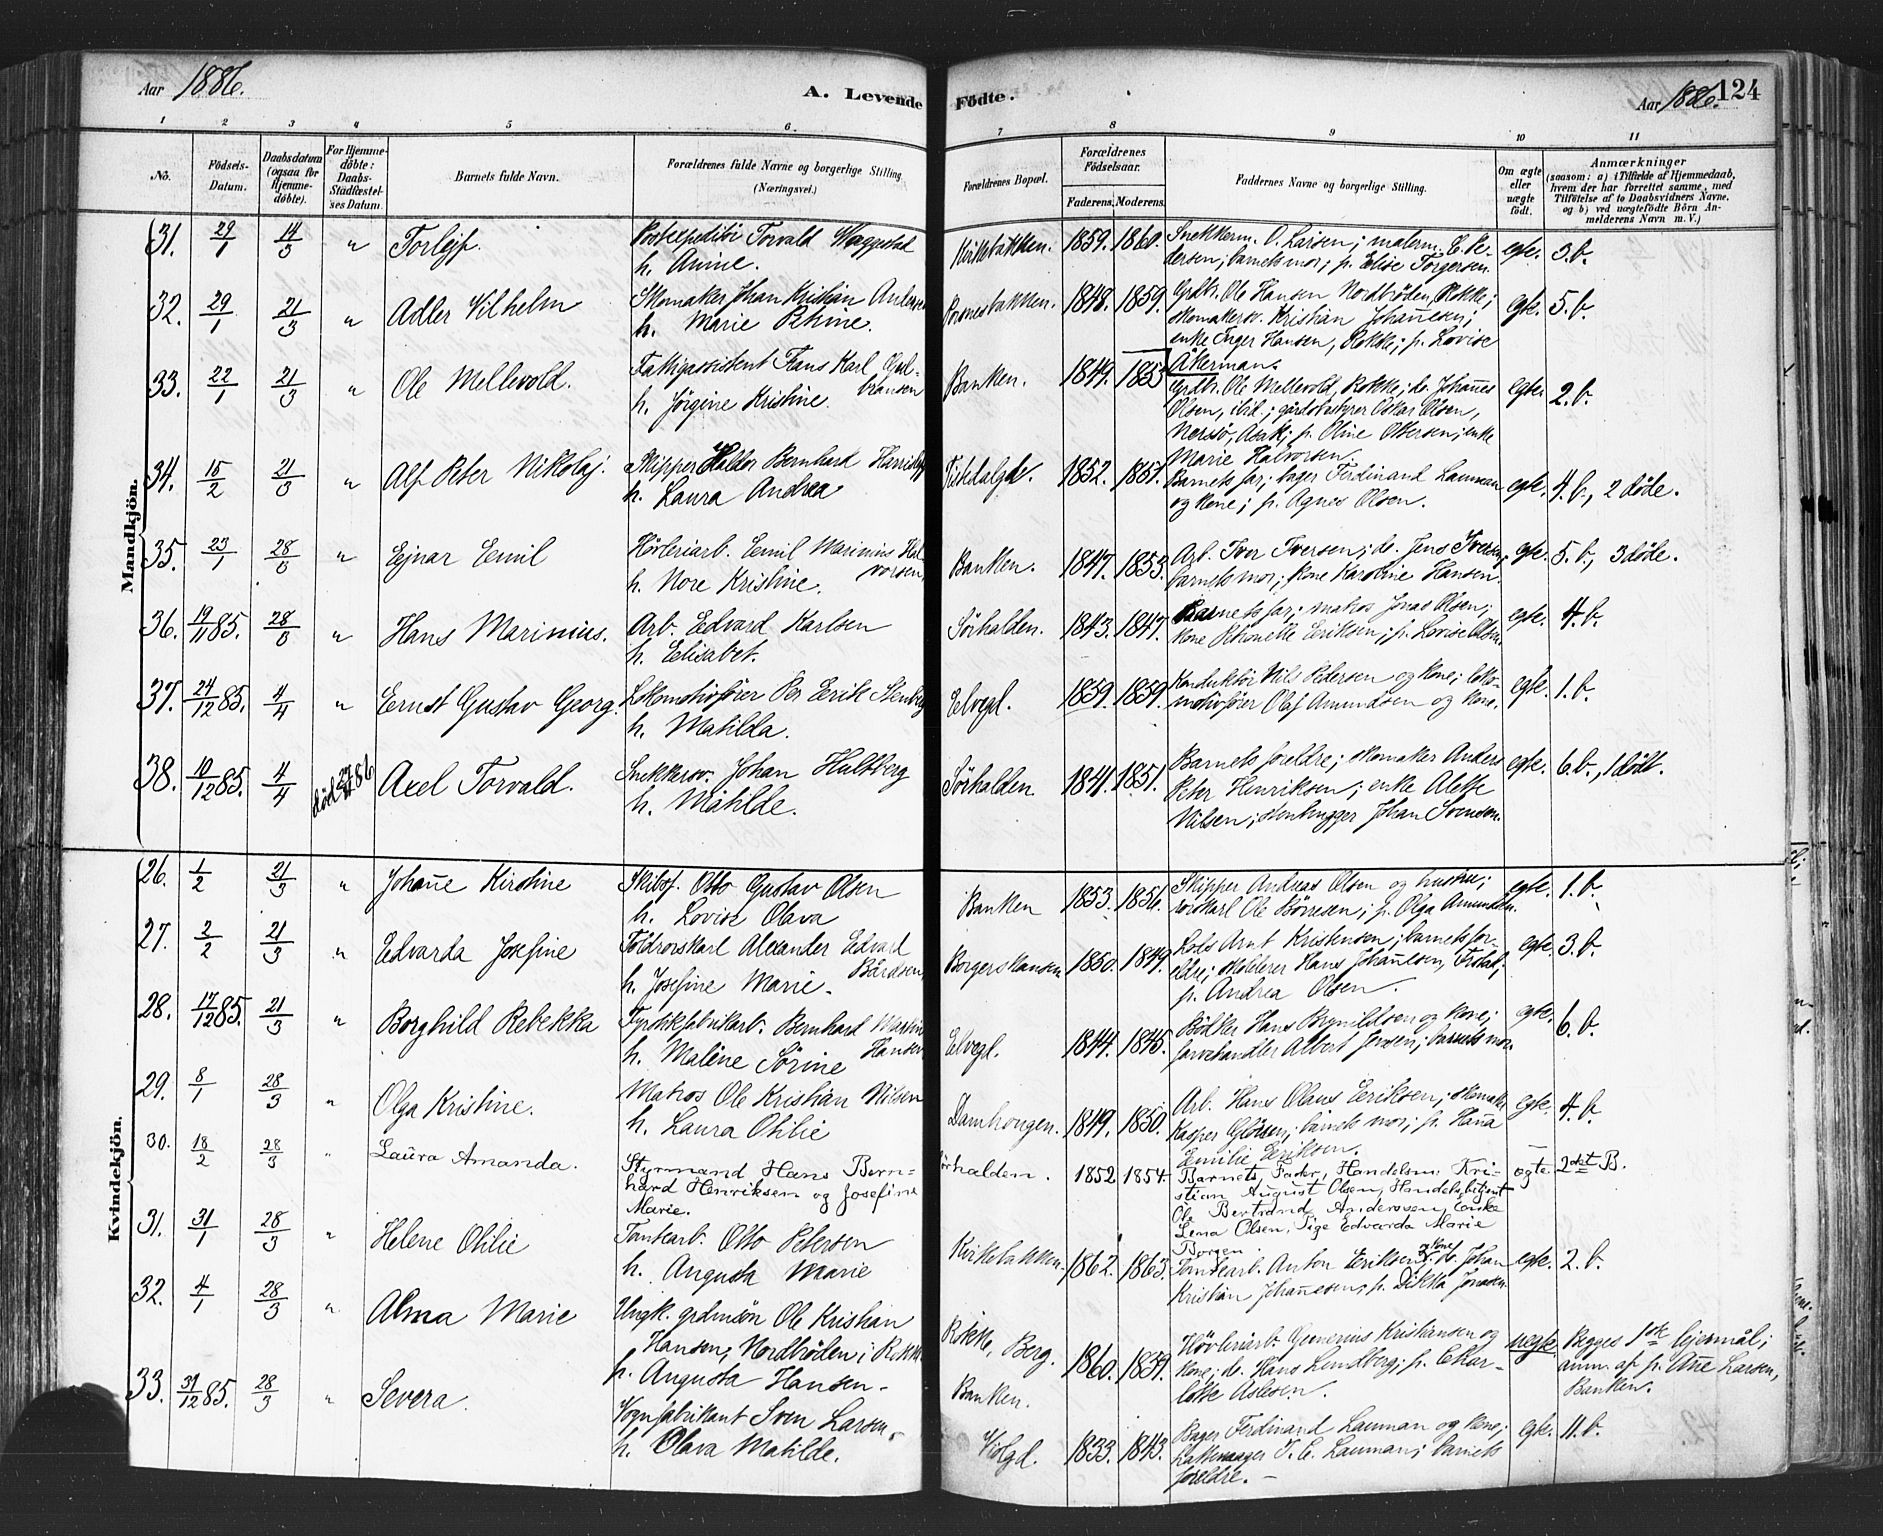 Aar 1886.
A. Levende Födte.
Aar 1886. 124
1 2 3 4 5 6. 7 8 9 10 11
No. Födsels-Datum. Daabsdatum (ogsaa for Hjemmedöbte). For Hjemmedöbte: Daabs-Stadfæstelses Datum. Barnets fulde Navn. Forældrenes fulde Navne og borgerlige Stilling (Næringsvei.) Forældrenes Bopæl. Forældrenes Födselsaar. Faderens. Moderens. Faddernes Navne og borgerlige Stilling. Om ægte eller uægte födt. Anmærkninger (saasom: a) i Tilfælde af Hjemmedaab, hvem der har forrettet samme, med Tilföielse af to Daabsvidners Navne. og b) ved uægtefödte Börn Anmelderens Navn m. V.)
Mandkjön.
31. 29/1 14/3 " Torlejf. Torvald
h. Anine. Kirkebakken. 1859. 1860. Snekkerm. O. Larsen; malerm. C. Pe-
dersen; barnets mor; p. Elise Torgersen. egte. 3. b.
32. 29/1 21/3 " Adler Vilhelm Skomaker Johan Kristian Anders
h. Marie 1848. 1859. Grdbr. Ole Hansen Nordbröden, Rokke;
skomakersv. Kristian Johan̄esen;
enke Inger Hansen, Rokke; p. Lovise
Åkerman. egte. 5. b.
33. 22/1 21/3 " Ole Mellevold. Fattigassistent Frans Karl Gul-
bransen
h. Jörgine Kristine. Banken. 1849. 1853 Grdbr. Ole Mellevold, Rokke; do. Johan̄es
Olsen, ibid.; gårdsbestyrer Oskar Olsen,
Asak; p. Oline Ottersen; enke
Marie Halvorsen. egte. 2. b.
34. 15/2 21/3 " Alf Peter Nikolaj. Skipper Haldor Bernhard
h. Laura Andrea 1852. 1857. Barnets far; bager Ferdinand Lauman
og kone; p. Agnes Olsen. egte. 4. b., 2 døde.
35. 23/1 28/3 " Ejnar Emil Høvleriarb. Emil Marinius Hal-
vorsen,
h. Nore Kristine. Banken. 1847. 1853. Arb. Ivor Iversen; do. Jens Iversen,
barnets mor; kone Karoline Hansen. egte. 5. b., 3 døde.
36. 19/11 85. 28/3 " Hans Marinius. Arb. Edvard Karlsen
h. Elisabet. Sørhalden. 1843. 1847. Barnets far; matros Jonas Olsen;
kone Petronelle Eriksen; p. Lovise Olsen. egte. 4. b.
37. 24/12 85. 4/4 " Ernst Gustav Georg. Lokomotivfører Per Erik Stenberg
h. Matilda. Elvegl. 1859. 1859. Konduktör Nils Pedersen og kone; loko-
motivfører Olaf Amundsen og kone. egte. 1. b.
38. 10/12 85. 4/4 død 86 Axel Torvald. Snekkersv. Johan Hultberg
h. Matilde. Sørhalden 1841. 1851. Barnets foreldre; skomaker Anders
Peter Henriksen; enke Alette
Nilsen; stenhugger Johan Svensen. egte. 6. b., 1 dödt.
Kvindekjön.
26. 1/2 21/3 " Johan̄e Kirstine Skibsf. Otto Gustav Olsen
h. Lovise Olava Banken 1853. 1856. Skipper Andreas Olsen og hustru;
rorskarl Ole Börresen; p. Olga Amundsen. egte. 1. b.
27. 2/2 21/3 " Edvarda Josefine Toldrorskarl Alexander Edvard
Bårdsen,
h. Josefine Marie. Borgerskansen 1850. 1849. Lods Arnt Kristensen; barnets for-
eldre; Hans Johan̄esen,
p. Andrea Olsen. egte. 3. b.
28. 17/12 85. 21/3 " Borghild Rebekka Fyrstikfabrikarb. Bernhard Martin
Hansen
h. Maléne Sörine Elvegl. 1844. 1845. Bödker Hans Brynildsen og kone;
farvehandler Albert Jensen; barnets mor. egte. 6. b.
29. 8/1 28/3 " Olga Kristine. Matros Ole Kristian Nilsen
h. Laura Otilie Damhaugen. 1849. 1850. Arb. Hans Olaus Eriksen; skomaker
Kasper barnets mor; p. Han̄a
Emilie Eriksen. egte. 4. b
30. 18/2 28/3 " Laura Amanda. Styrmand Hans Bern-
hard Henriksen og Josefine
Marie. Sørhalden. 1852 1854. Barnets Fader, Handelsm. Kri-
stian August Olsen, Handelsbetjent
Ole Bertrand Anderssen, Enke
Lena Olsen, Pige Edvarda Marie
Borgen. ægte. 2det B.
31. 31/1 28/3 " Helene Otilie Tomtearb. Otto Petersen
h. Augusta Marie Kirkebakken. 1862. 1863. Tomtearb. Anton Eriksen og kone; do. Johan
Kristian Johan̄esen; p. Dikka Jonassen. egte. 2. b.
32. 4/1 28/3 " Alma Marie Ungk. grdmsön Ole Kristian
Hansen, Nordbröden i Rokke
p. Augusta Hansen. Rokke, Berg.
Banken. 1860. 1859. Høvleriarb. Gunerius Kristiansen og
kone; do. Hans Lundberg; p. Char-
lotte Aslesen. uegte Begges 1ste lejermål;
anm. af p. An̄e Larsen,
Banken.
33. 31/12 85. 28/3 " Severa. Vognfabrikant Sven Larsen,
h. Olava Matilde. Volgd. 1833. 1843. Bager Ferdinand Lauman og kone;
J. E. Lauman; barnets
foreldre. egte. 11. b.